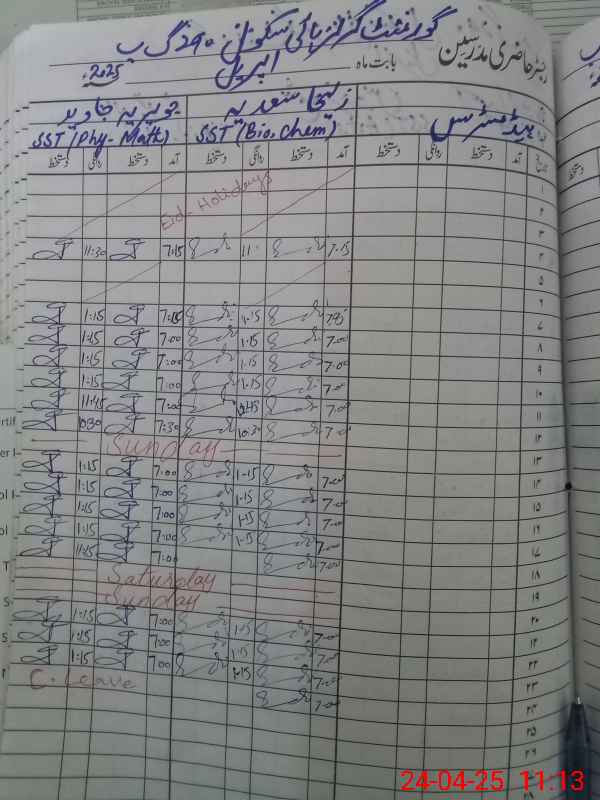 گورنمنٹ گرلز ہائی سکول ۲۹۰ گ ب
رجسٹر حاضری مدرسین بابت ماہ اپریل 2025ء
ہیڈمسٹریس زلیخا سعدیہ جویریہ جاوید
SST (Phy-Math) SST (Bio.Chem)
دستخط روانگی دستخط آمد دستخط روانگی دستخط آمد دستخط روانگی دستخط آمد
Eid Holidays
۱
۲
۳
11:30 7:15 11: 7.15
۵
۶
1:15 7:15 1.15 ۷
1:15 7:00 1.15 7.00 ۸
1:15 7:00 1.15 7.00 ۹
1:15 7:00 1.15 7.00 ۱۰
11:45 7:00 7.00 ۱۱
10:30 7:30 10:30 7.00 ۱۲
Sunday ۱۳
1:15 7:00 1-15 7.00
1:15 7:00 1-15 7.00 ۱۵
1:15 7:00 1-15 7.00 ۱۶
1:15 7:00 1-15 7.00 ۱۷
11:15 7:00 7.00 ۱۸
Saturday ۱۹
Sunday ۲۰
1:15 7:00 1:15 7.00
1:15 7:00 1:15 7.00 ۲۲
1:15 7:00 1:15 7.00 ۲۳
C. Leave 7.00
۲۵
۲۶
24-04-25 11:13